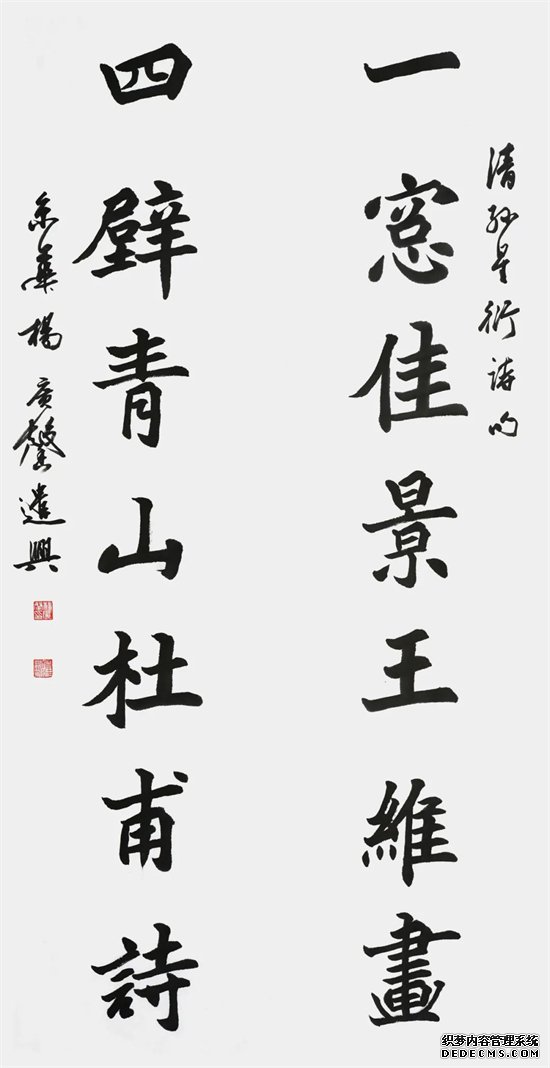 清孫星衍詩句
一窓佳景王維畫
四壁青山杜甫詩
京華楊廣馨遣興
织梦内容管理系统
DEDECMS.COM